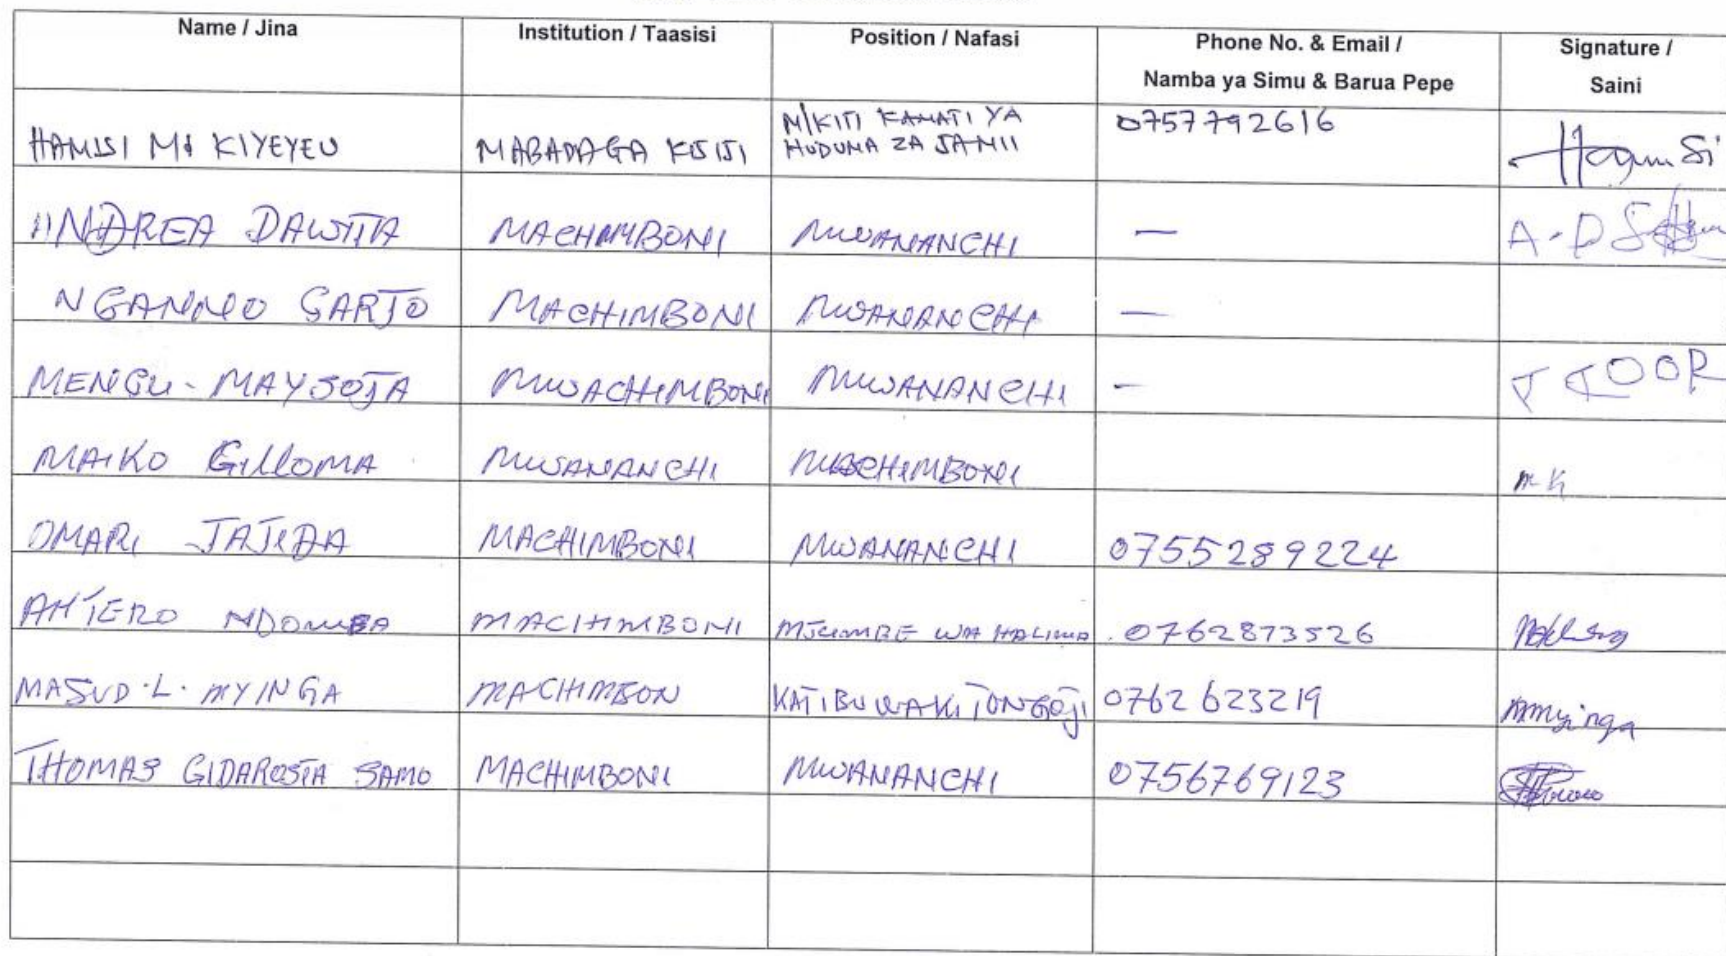 Name / Jina Institution / Taasisi Position / Nafasi Phone No. & Email / Signature /
Namba ya Simu & Barua Pepe Saini
HAMISI MS KIYEYEU MABADAGA KIJIJI M/KITI KAMATI YA 0757792616 Hamisi
HUDUMA ZA JAMII
ANDREA DAWITA MACHIMBONI MWANANCHI — A-D
NGANMO GARJO MACHIMBONI MWANANCHI —
MENGU - MAYSOJA MWACHIMBONI MWANANCHI –
MAIKO GILLOMA MWANANCHI MACHIMBONI MK
OMARI JAJIDA MACHIMBONI MWANANCHI 0755289224
ANTERO NDOMBA MACHIMBONI MJUMBE WA HALIMA 0762873526
MASUD .L. MYINGA MACHIMBON KATIBU WA KITONGOJI 0762623219 Mmyinga
THOMAS GIDAROSTA SAMO MACHIMBONI MWANANCHI 0756769123